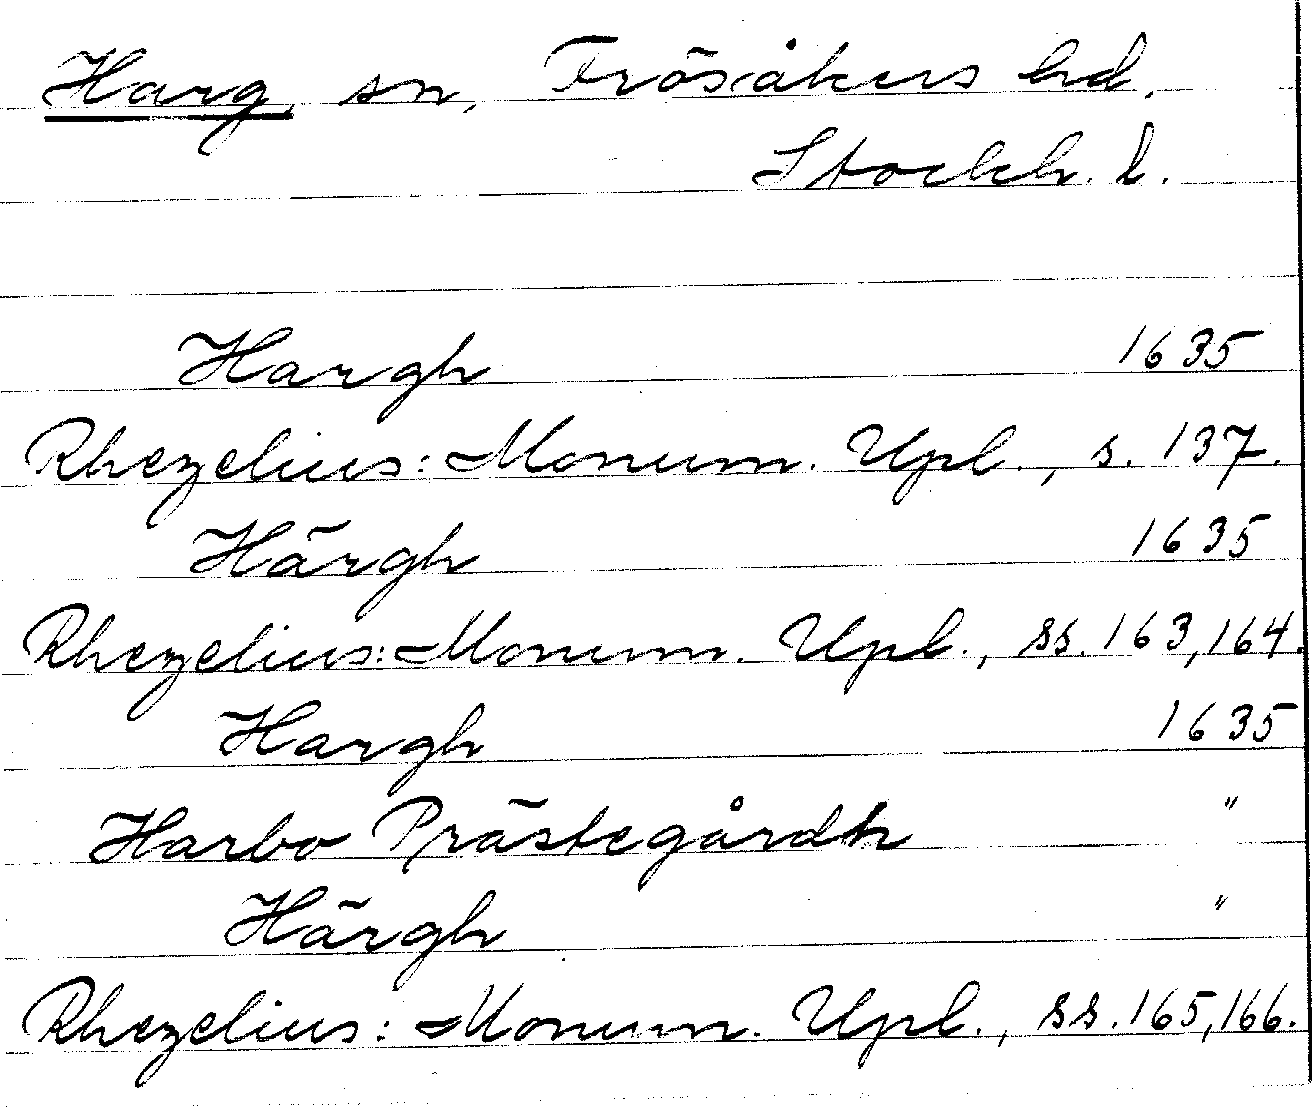 Harg sn, Frösåkers hd.
Stockh. l.
Hargh 1635
Rhezelius: Monum. Upl., s. 137.
Härgh 1635
Rhezelius: Monum. Upl., ss. 163, 164.
Hargh 1635
Harbo Prästegårdh "
Härgh "
Rhezelius: Monum. Upl., ss. 165, 166.